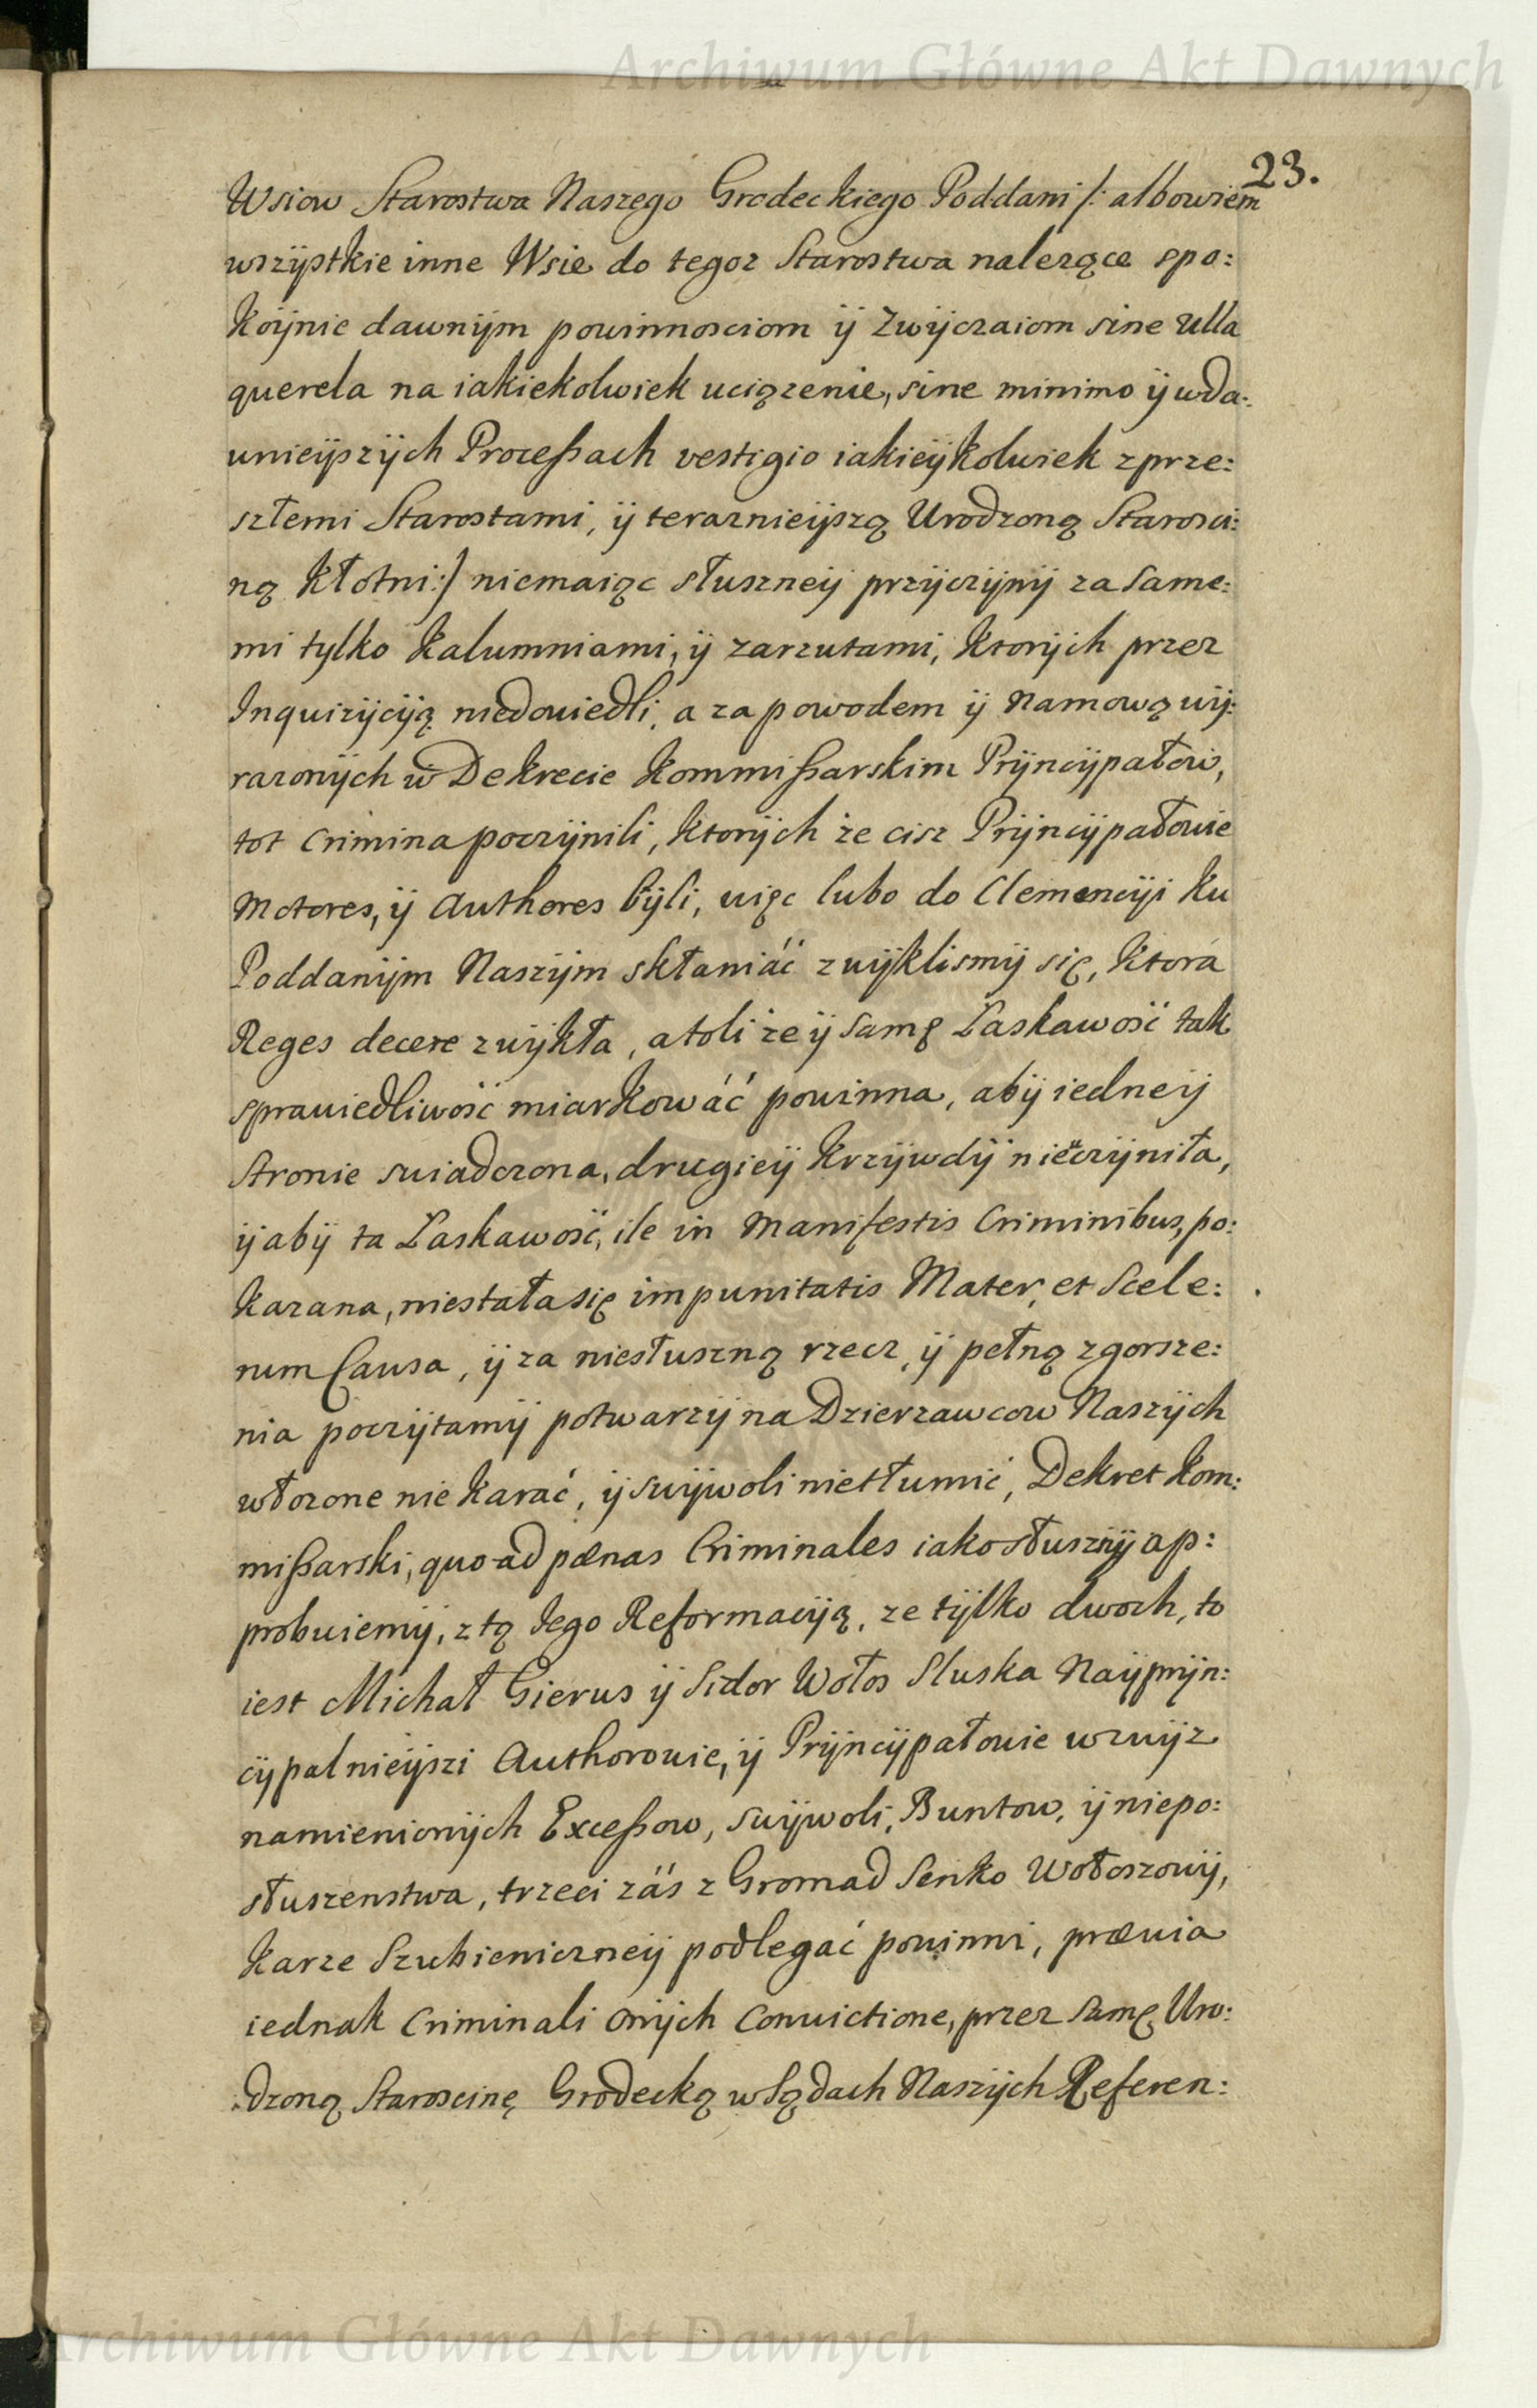 Archiwum Główne Akt Dawnych
23.
Wsiow Starostwa Naszego Grodeckiego Poddani /: albowiem
wszÿstkie inne Wsie do tegoz Starostwa nalezące spo:
koÿnie dawnÿm powinnosciom ÿ Zwÿczaiom sine ulla
querela na iakiekolwiek uciązenie, sine minimo ÿ wda:
wnieÿszÿch Processach vestigio iakieÿkolwiek zprze:
szłemi Starostami, ÿ teraznieÿszą Urodzoną Starosci:
ną Kłotni:/ niemaiąc słuszneÿ przÿczÿnÿ za same:
mi tylko kalumniami, ÿ zarzutami, ktorÿch przez
Inquizÿcÿą niedowiedli, a za powodem ÿ Namową wÿ:
razonÿch w Dekrecie Kommissarskim Prÿncÿpałow,
tot Crimina poczÿnili, ktorÿch że cisz Prÿncÿpałowie
Motores, ÿ Authores bÿli, więc lubo do Clemencÿi ku
Poddanÿm Naszÿm skłaniáć zwÿklismÿ się, ktora
Reges decere zwÿkła, atoli że ÿ samę Łaskawość tak
sprawiedliwość miarkowáć powinna, abÿ iedneÿ
stronie swiadczona, drugieÿ krzÿwdÿ nieuczÿniła,
ÿ abÿ ta Łaskawość, ile in Manifestis Criminibus, po:
kazana, niestała się impunitatis Mater, et Scele:
rum Causa, ÿ za niesłuszną rzecz, ÿ pełną zgorsze:
nia poczÿtamÿ potwarzÿ na Dzierzawcow Naszÿch
włozone nie karać, ÿ swÿwoli nietłumić, Dekret Kom:
missarski, quo ad pænas Criminales iako słusznÿ ap:
probuiemÿ, z tą Jego Reformacÿą, ze tÿlko dwoch, to
iest Michał Gierus ÿ Sidor Wołos Sluska Naÿprÿn:
cÿpalnieÿszi Authorowie, ÿ Prÿncÿpałowie wzwÿz
namienionÿch Excessow, swÿwoli, Buntow, ÿ niepo:
słuszenstwa, trzeci záś z Gromad Senko Wołoszowÿ,
karze Szubieniczneÿ podlegać powinni, prævia
iednak Criminali onÿch Convictione, przez samę Uro:
dzoną Staroscinę Grodecką w Sądach Naszÿch Referen:
Archiwum Główne Akt Dawnych